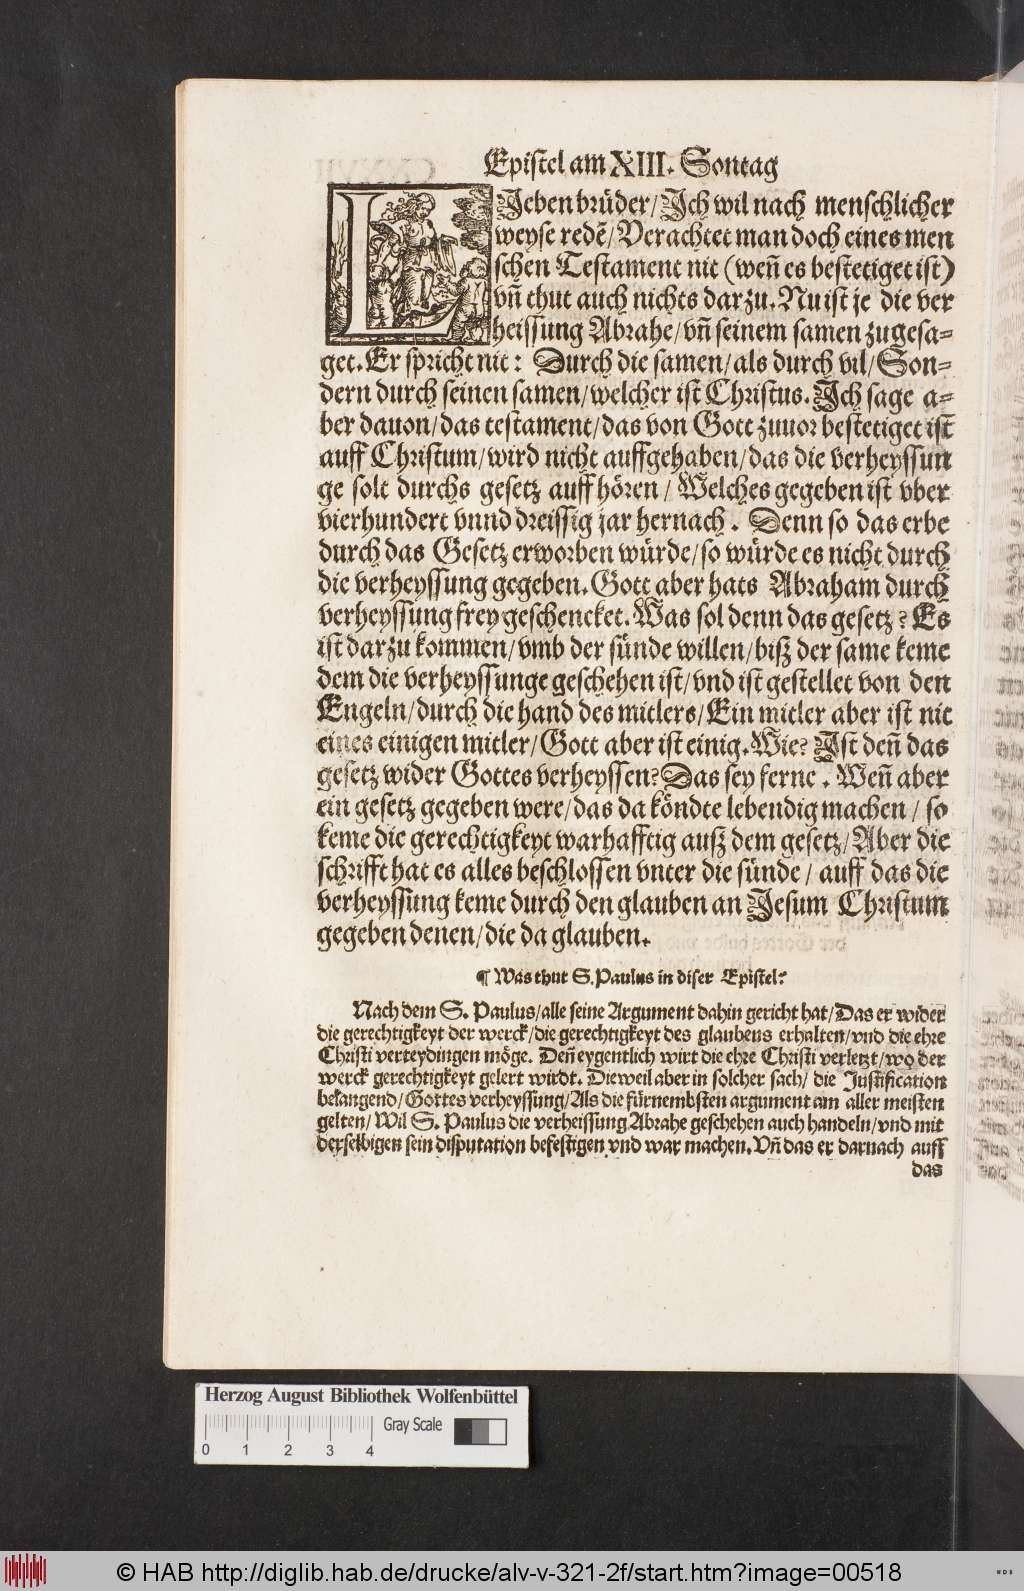 Epistel am XIII. Sontag
LJeben brüder/Jch wil nach menschlicher
weyse redẽ/Verachtet man doch eines men
schen Testament nit (weñ es bestetiget ist)
vñ thut auch nichts darzu. Nu ist je die ver
heissung Abrahe/vñ seinem samen zugesa-
get. Er spricht nit: Durch die samen/als durch vil/Son-
dern durch seinen samen/welcher ist Christus. Jch sage a-
ber dauon/das testament/das von Gott zuuor bestetiget ist
auff Christum/wird nicht auffgehaben/das die verheyssun
ge solt durchs gesetz auff hören/Welches gegeben ist vber
vierhundert vnnd dreissig jar hernach. Denn so das erbe
durch das Gesetz erworben würde/so würde es nicht durch
die verheyssung gegeben. Gott aber hats Abraham durch
verheyssung frey geschencket. Was sol denn das gesetz? Es
ist darzu kommen/vmb der sünde willen/biß der same keme
dem die verheyssunge geschehen ist/vnd ist gestellet von den
Engeln/durch die hand des mitlers/Ein mitler aber ist nit
eines einigen mitler/Gott aber ist einig. Wie? Jst deñ das
gesetz wider Gottes verheyssen? Das sey ferne. Weñ aber
ein gesetz gegeben were/das da köndte lebendig machen/so
keme die gerechtigkeyt warhafftig auß dem gesetz/Aber die
schrifft hat es alles beschlossen vnter die sünde/auff das die
verheyssung keme durch den glauben an Jesum Christum
gegeben denen/die da glauben.
¶ Was thut S. Paulus in diser Epistel?
Nach dem S. Paulus/alle seine Argument dahin gericht hat/Das er wider
die gerechtigkeyt der werck/die gerechtigkeyt des glaubens erhalten/vnd die ehre
Christi verteydingen möge. Deñ eygentlich wirt die ehre Christi verletzt/wo der
werck gerechtigkeyt gelert wirdt. Dieweil aber in solcher sach/die Justification
belangend/Gottes verheyssung/Als die fürnembsten argument am aller meisten
gelten/Wil S. Paulus die verheissung Abrahe geschehen auch handeln/vnd mit
derselbigen sein disputation befestigen vnd war machen. Vñ das er darnach auff
das
Herzog August Bibliothek Wolfenbüttel
Gray Scale
0 1 2 3 4
© HAB http://diglib.hab.de/drucke/alv-v-321-2f/start.htm?image=00518